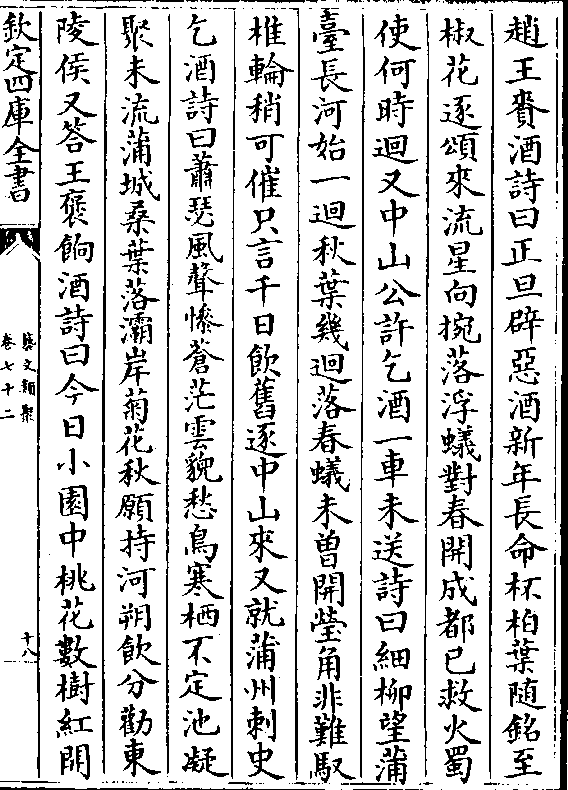 趙王賚酒詩曰正旦辟惡酒新年長命杯柏葉隨銘至
椒花逐頌來流星向捥落浮蟻對春開成都已救火蜀
使何時迴又中山公許乞酒一車未送詩曰細柳望蒲
臺長河始一迴秋葉幾迴落春蟻未曽開瑩角非難馭
椎輪稍可催只言千日飲舊逐中山來又就蒲州刺史
乞酒詩曰蕭瑟風聲慘蒼茫雲貌愁鳥寒栖不定池凝
聚未流蒲城桑葉落灞岸菊花秋願持河朔飲分勸東
陵侯又答王褒餉酒詩曰今日小園中桃花數樹紅開
欽定四庫全書
藝文類聚
卷七十二
十八